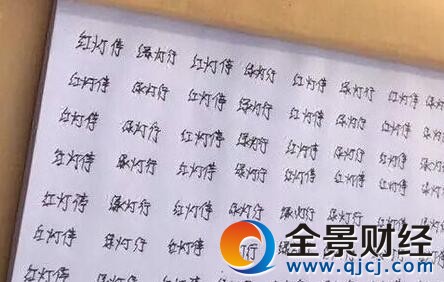 红灯停 绿灯行 红灯停 绿灯行 红灯停 绿灯行 红灯停 绿灯
红灯停 绿灯行 红灯停 绿灯行 红灯停 绿灯行 红灯停
红灯停 绿灯行 红灯停 绿灯行 红灯停 绿灯行 红灯停
红灯停 绿灯行 红灯停 绿灯行 红灯停 绿灯行 红灯停
红灯停 绿灯行 红灯停 绿灯行 红灯停 绿灯行 红灯停
红灯停 绿灯行 红灯停 灯行
红灯停 绿灯行 红灯停
全景财经
www.qjcj.com